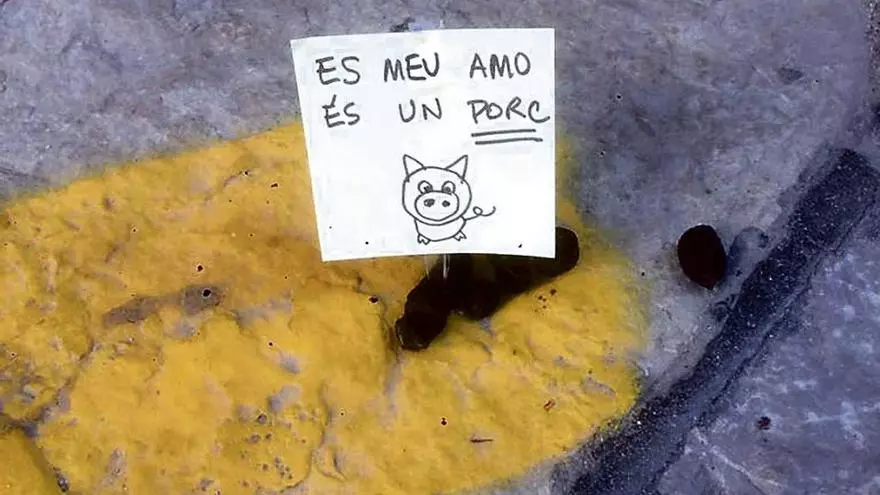 ES MEU AMO
ÉS UN PORC